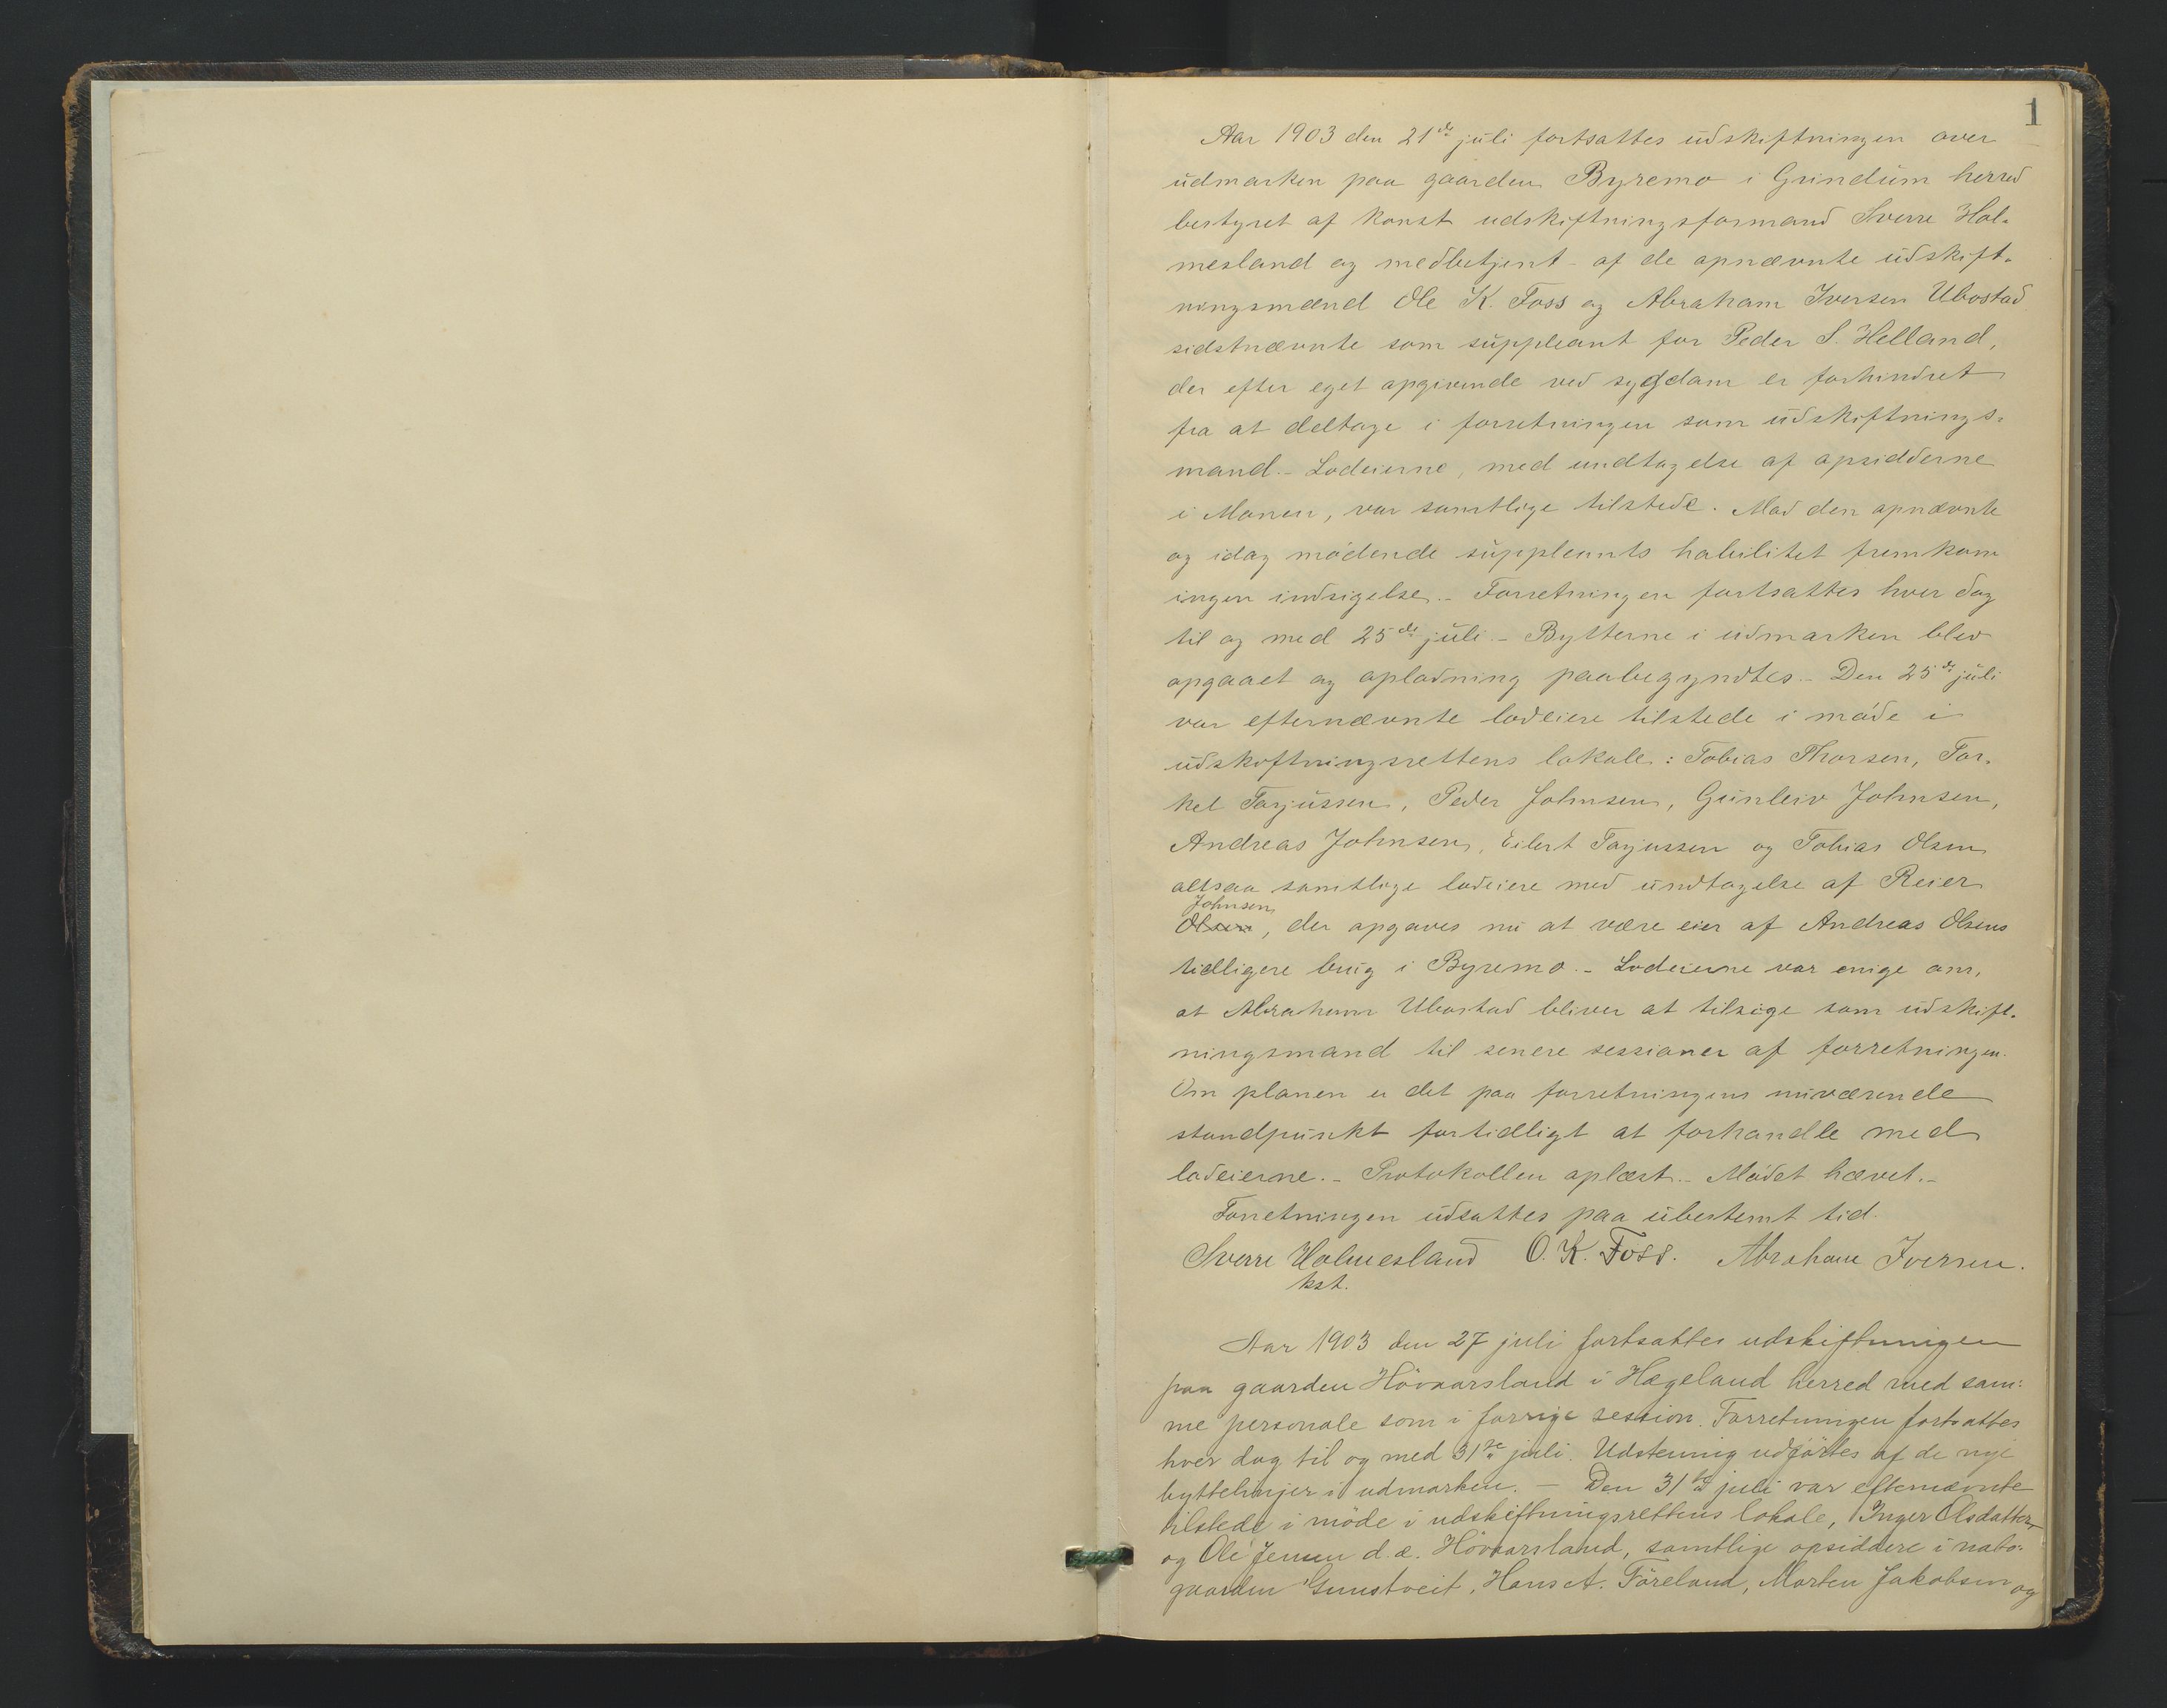 1
Aar 1903 den 21de juli fortsattes udskiftningen over
udmarken paa gaarden Byremo i Grindum herred
bestyret af konst udskiftningsformand Sverre Hol-
mesland og medbetjent af de opnævnte udskift-
ningsmænd Ole K. Foss og Abraham Iversen Ubostad
sidstnævnte som suppleant for Peder S. Helland,
der efter eget opgivende ved sygdom er forhindret
fra at deltage i forretningen som udskiftnings-
mand. - Lodeierne, med undtagelse af opsidderne
i Monen, var samtlige tilstede. Mod den opnævnte
og idag mødende suppleants habilitet fremkom
ingen indsigelse. - Forretningen fortsattes hver dag
til og med 25de juli. - Bytterne i udmarken blev
opgaaet og oplodning paabegyndtes. - Den 25de juli
var efternævnte lodeiere tilstede i møde i
udskiftningsrettens lokale: Tobias Thorsen, Tor-
kel Tarjussen, Peder Johnsen, Gunleiv Johnsen,
Andreas Johnsen, Eilert Tarjussen og Tobias Olsen
altsaa samtlige lodeiere med undtagelse af Reier
Johnsen
Olsen, der opgaves nu at være eier af Andreas Olsens
tidligere brug i Byremo. - Lodeierne var enige om,
at Abraham Ubostad bliver at tilsige som udskift-
ningsmand til senere sessioner af forretningen.
Om planen er det paa forretningens nuværende
standpunkt fortidligt at forhandle med
lodeierne. - Protokollen oplæst. - Mødet hævet. -
Forretningen udsattes paa ubestemt tid.
Sverre Holmesland O. K. Foss. Abraham Iversen.
kst.
Aar 1903 den 27 juli fortsattes udskiftningen
paa gaarden Hövaarsland i Hægeland herred med sam:
me personale som i forrige session. Forretningen fortsattes
hver dag til og med 31te juli. Udstening udførtes af de nye
byttelinjer i udmarken. - Den 31te juli var efternævnte
tilstede i møde i udskiftningsrettens lokale, Inger Olsdatter
og Ole Jensen d.æ. Hövaarsland, samtlige opsiddere i nabo:
gaarden Gunstveit, Hans A. Föreland, Morten Jakobsen og